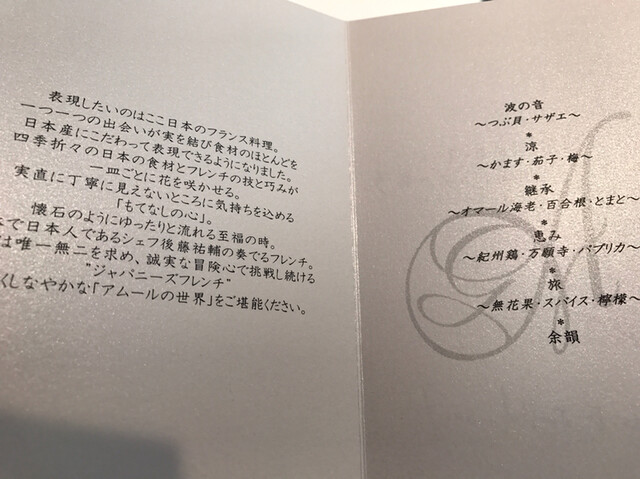 表現したいのはここ日本のフランス料理。
一つ一つの出会いが実を結び食材のほとんどを
日本産にこだわって表現できるようになりました。
四季折々の日本の食材とフレンチの技と巧みが
一皿ごとに花を咲かせる。
実直に丁寧に見えないところに気持ちを込める
「もてなしの心」。
懐石のようにゆったりと流れる至福の時。
で日本人であるシェフ後藤祐輔の奏でるフレンチ。
は唯一無二を求め、誠実な冒険心で挑戦し続ける
"ジャパニーズフレンチ"
くしなやかな「アムールの世界」をご堪能ください。
波の音
～つぶ貝・サザエ～
*
涼
～かます・茄子・梅～
*
継承
～オマール海老・百合根・とまと～
*
恵み
～紀州鶏・万願寺・パプリカ～
*
旅
～無花果・スパイス・檸檬～
*
余韻